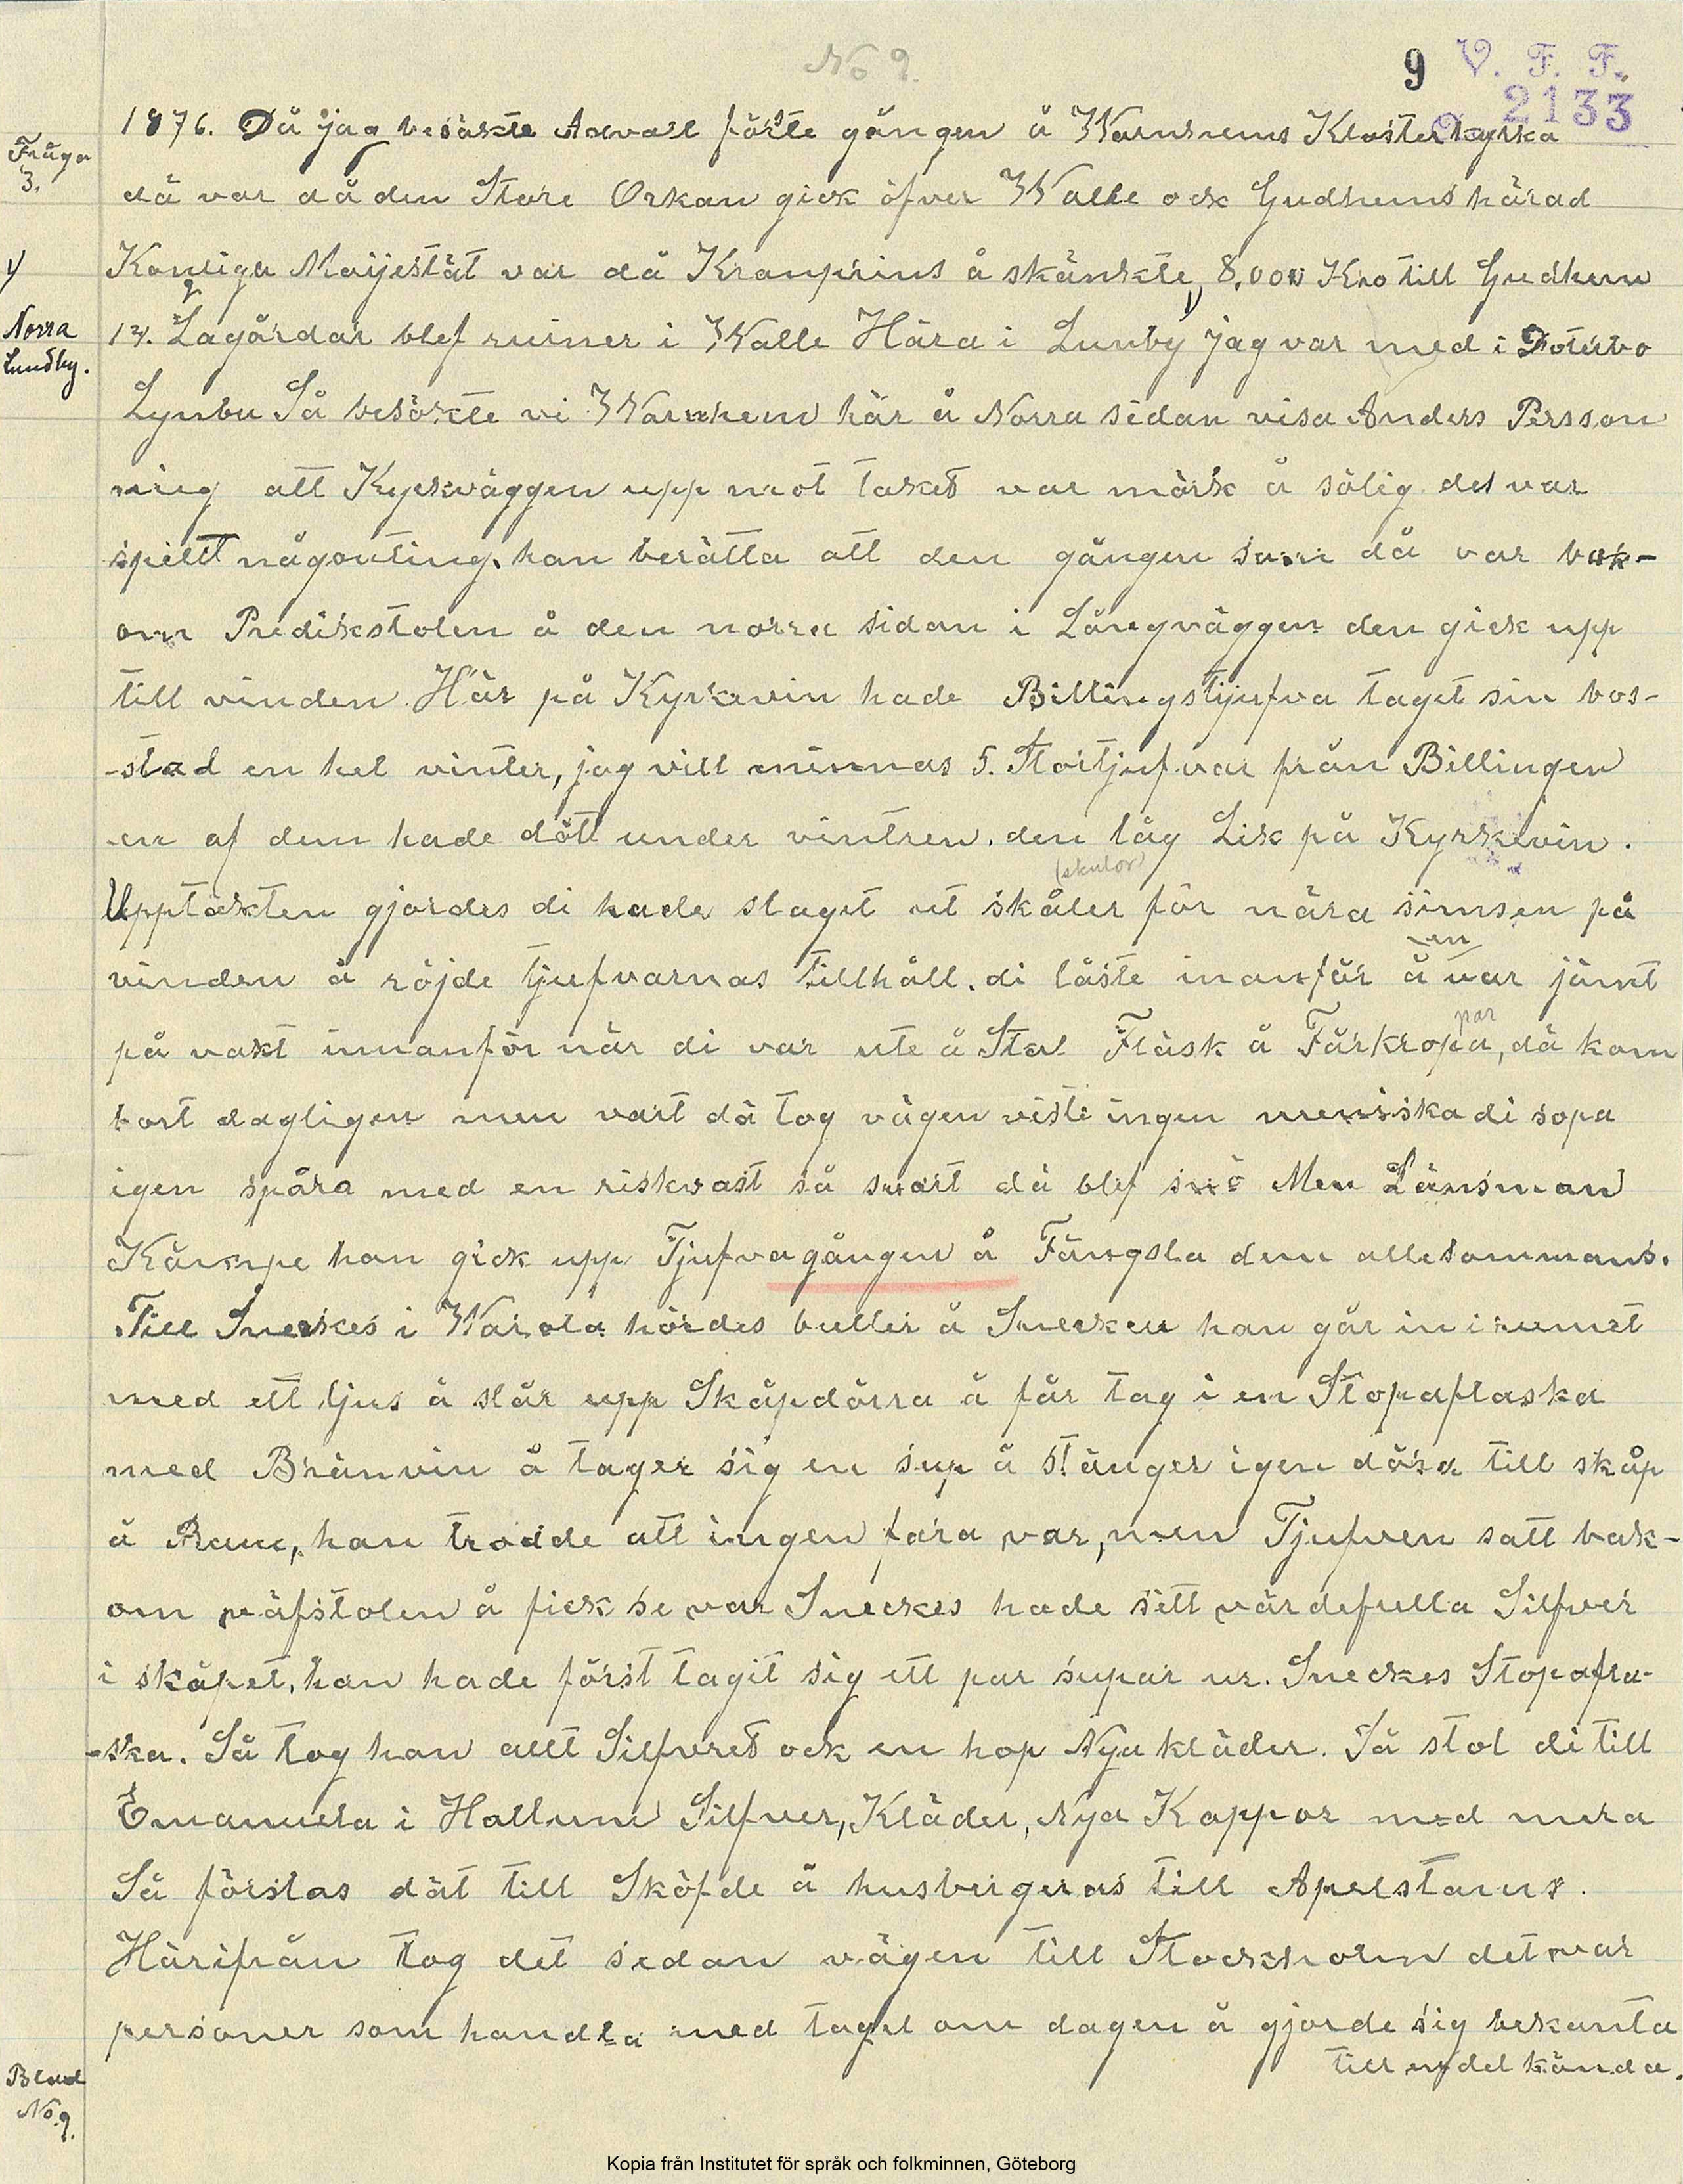 No 9.
9 V. F. F.
2133
Fråga
3.
1876. Då jag besökte Axvall förste gången å Warnhems Klosterkyrka
då var då den Store Orkan gick öfver Walle ock Gudhems härad
1)
Konliga Maijestät var då Kronprins å skänkte 1) 8,000 Kro till Gudhem
Norra
Lundby.
14. Lagårdar blef ruiner i Walle Hära i Lunby jag var med i
Lynbu Så besökte vi Warnhem här å Norra sidan visa Anders Persson
mig att Kyrkväggen upp mot taket var mörk å sölig det var
spillt någonting, han berätta att den gången som då var bak-
om Predikstolen å den norra sidan i Långväggen den gick upp
till vinden. Här på Kyrkevin hade Billingstjufva taget sin bos-
-stad en hel vinter, jag vill minnas 5. Stortjufvar från Billingen
en af dem hade dött under vintren. den låg Lik på Kyrkevin.
(skulor)
Upptäkten gjordes di hade slaget ut skåler för nära simsen på
en
vinden å röjde tjufvarnas tillhåll. di låste inanför å var jämt
par
på vakt innanför när di var ute å Stal Fläsk å Fårkropa, då kom
bort dagligen men vart dä tog vägen viste ingen meniska di sopa
igen spåra med en riskvast så snart dä blef snö Men Länsman
Kämpe han gick upp Tjufvagången å Fängsla dem allesammans.
Till Sneckes i Warola hördes buller å Snecken han går in i rumet
med ett ljus å slår upp Skåpdörra å får tag i en Stopaflaska
med Bränvin å tager sig en sup å stänger igen döra till skåp
å Rum, han trodde att ingen fara var, men Tjufven satt bak-
om väfstolen å fick se var Sneckes hade sitt värdefulla Silfver
i skåpet, han hade först tagit sig ett par supar ur. Sneckes Stopafla-
-ska. Så tog han allt Silfvret ock en hop Nya kläder. Så stol di till
Emanuela i Hallum Silfver, Kläder, Nya Kappor med mera
Så förslas dät till Sköfde å husbergeras till Apelstams.
Härifrån tog det sedan vägen till Stockholm det var
personer som handla med tagel om dagen å gjorde sig bekanta
till en del kända.
Blad
No 9.
Kopia från Institutet för språk och folkminnen, Göteborg